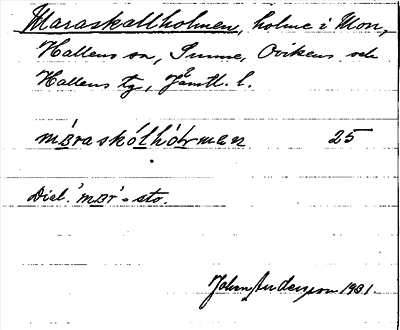 Maraskallholmen, holme i Mon,
Hallens sn, Sunne, Ovikens och
Hallens tg, Jämtl. l.
måraskólhólmen 25
Dial. 'mår' = sto.
John Andersson 1931.